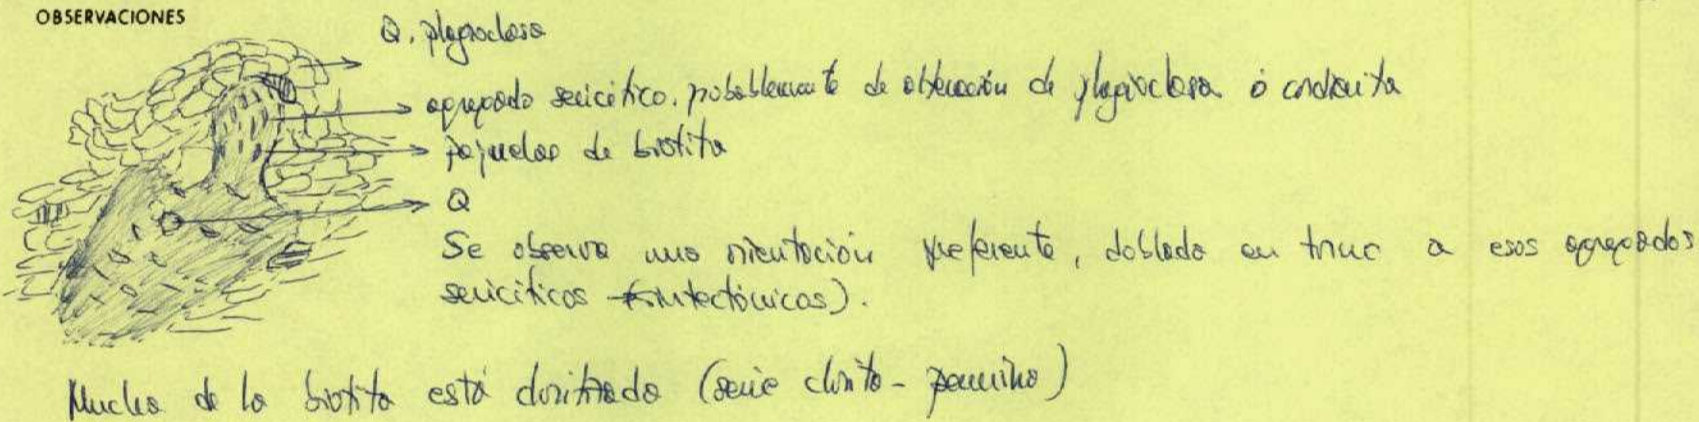 OBSERVACIONES
Q. plagioclasa
agregado sericítico. probablemente de alteración de plagioclasa ó andalucita
pajuelas de biotita
Q
Se observa una orientación preferente, doblada en torno a esos agregados
sericíticos (sintectónicos).
Mucha de la biotita está cloritizada (serie clorita - pennina)